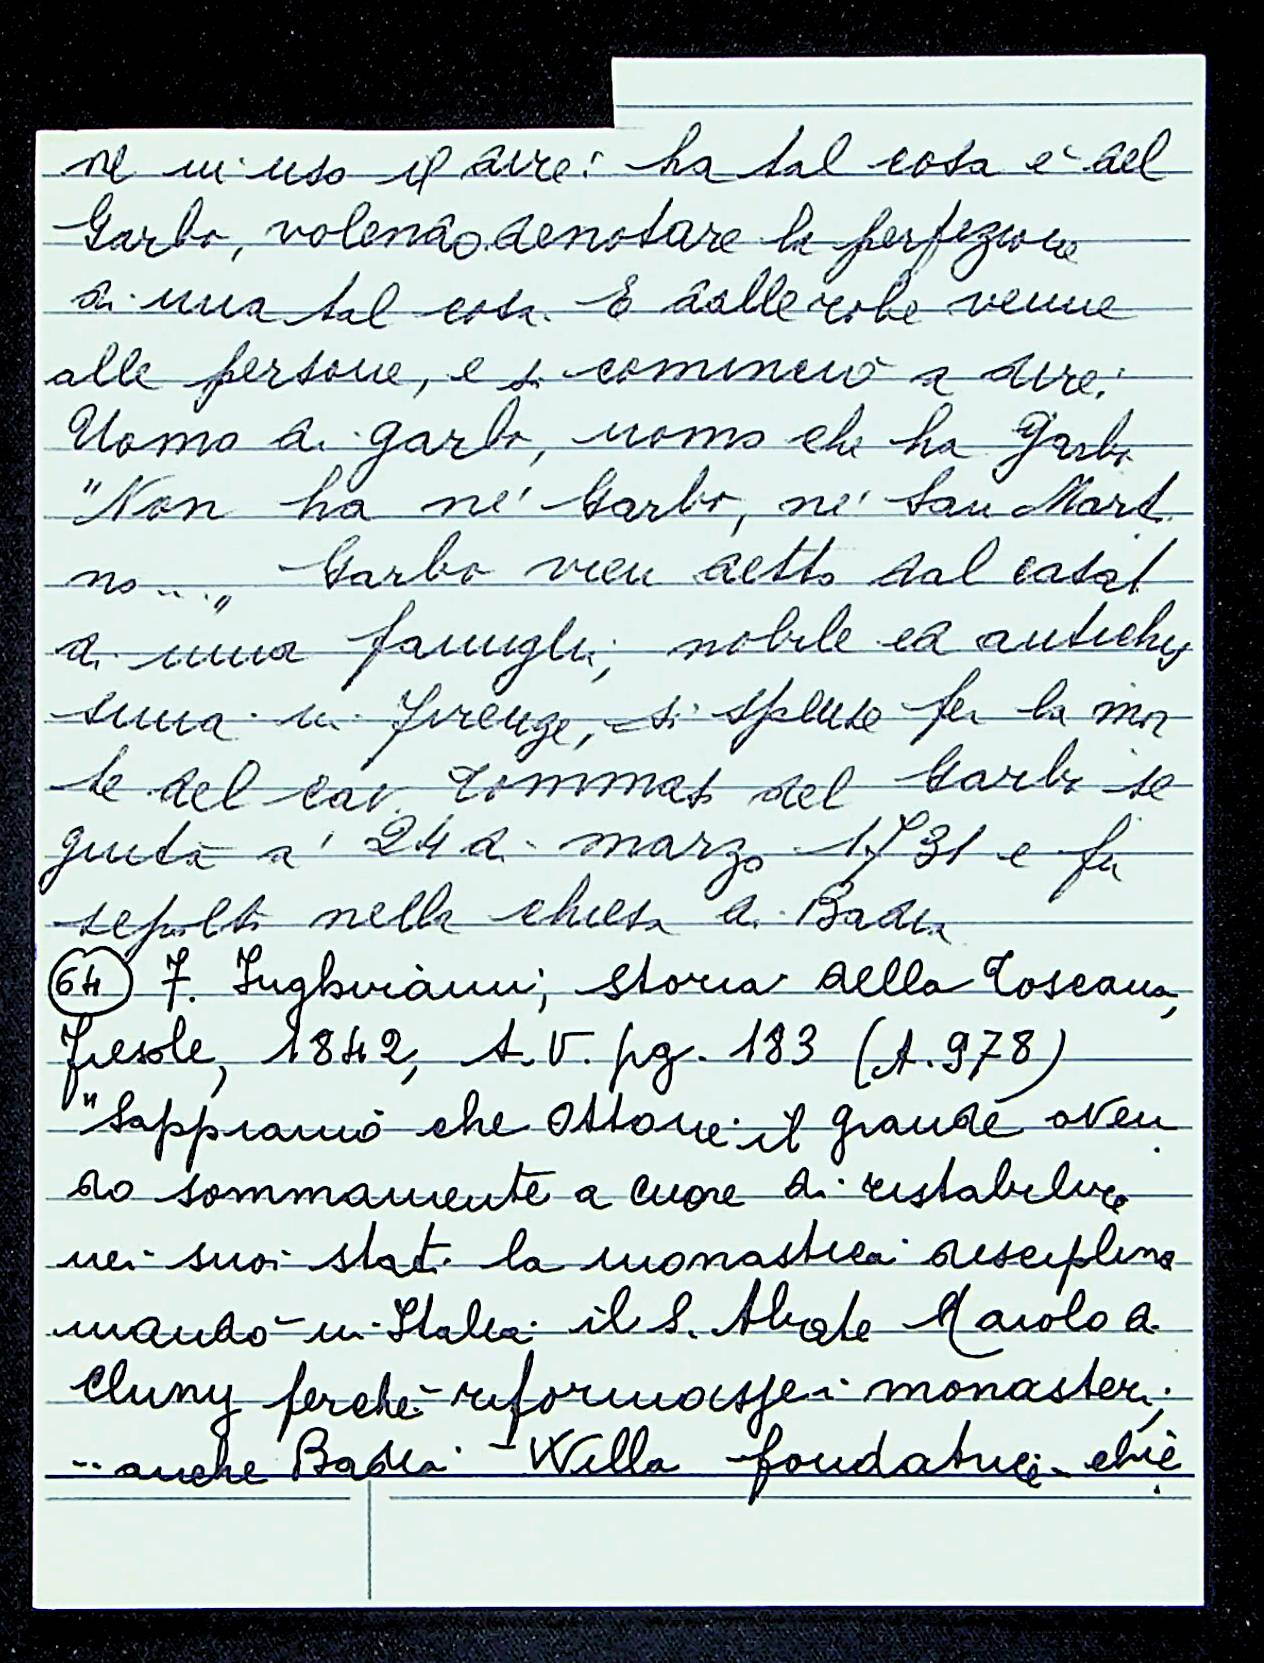 ne in uso il dire: ha tal cosa è del
Garbo, volendo denotare la perfezione
di una tal cosa. E dalle robe venne
alle persone, e si cominciò a dire:
Uomo di garbo, uomo che ha Garbo
"Non ha né Garbo, né San Marti
no..." Garbo vien detto dal casat
di una famiglia, nobile ed antichis
sima in Firenze, si spense per la mor
te del cav. Tommaso del Garbo se
guita a' 24 di marzo 1731 e fu
sepolto nella chiesa di Badia
(64) F. Inghirami, storia della Toscana,
Fiesole, 1842, t. V. pg. 183 (A. 978)
"Sappiamo che Ottone il grande aven
do sommamente a cuore di ristabilire
nei suoi stati la monastica disciplina
mandò in Italia il S. Abate Maiolo di
Cluny perché riformasse i monasteri,
... anche Badia - Willa fondatrice - chiè